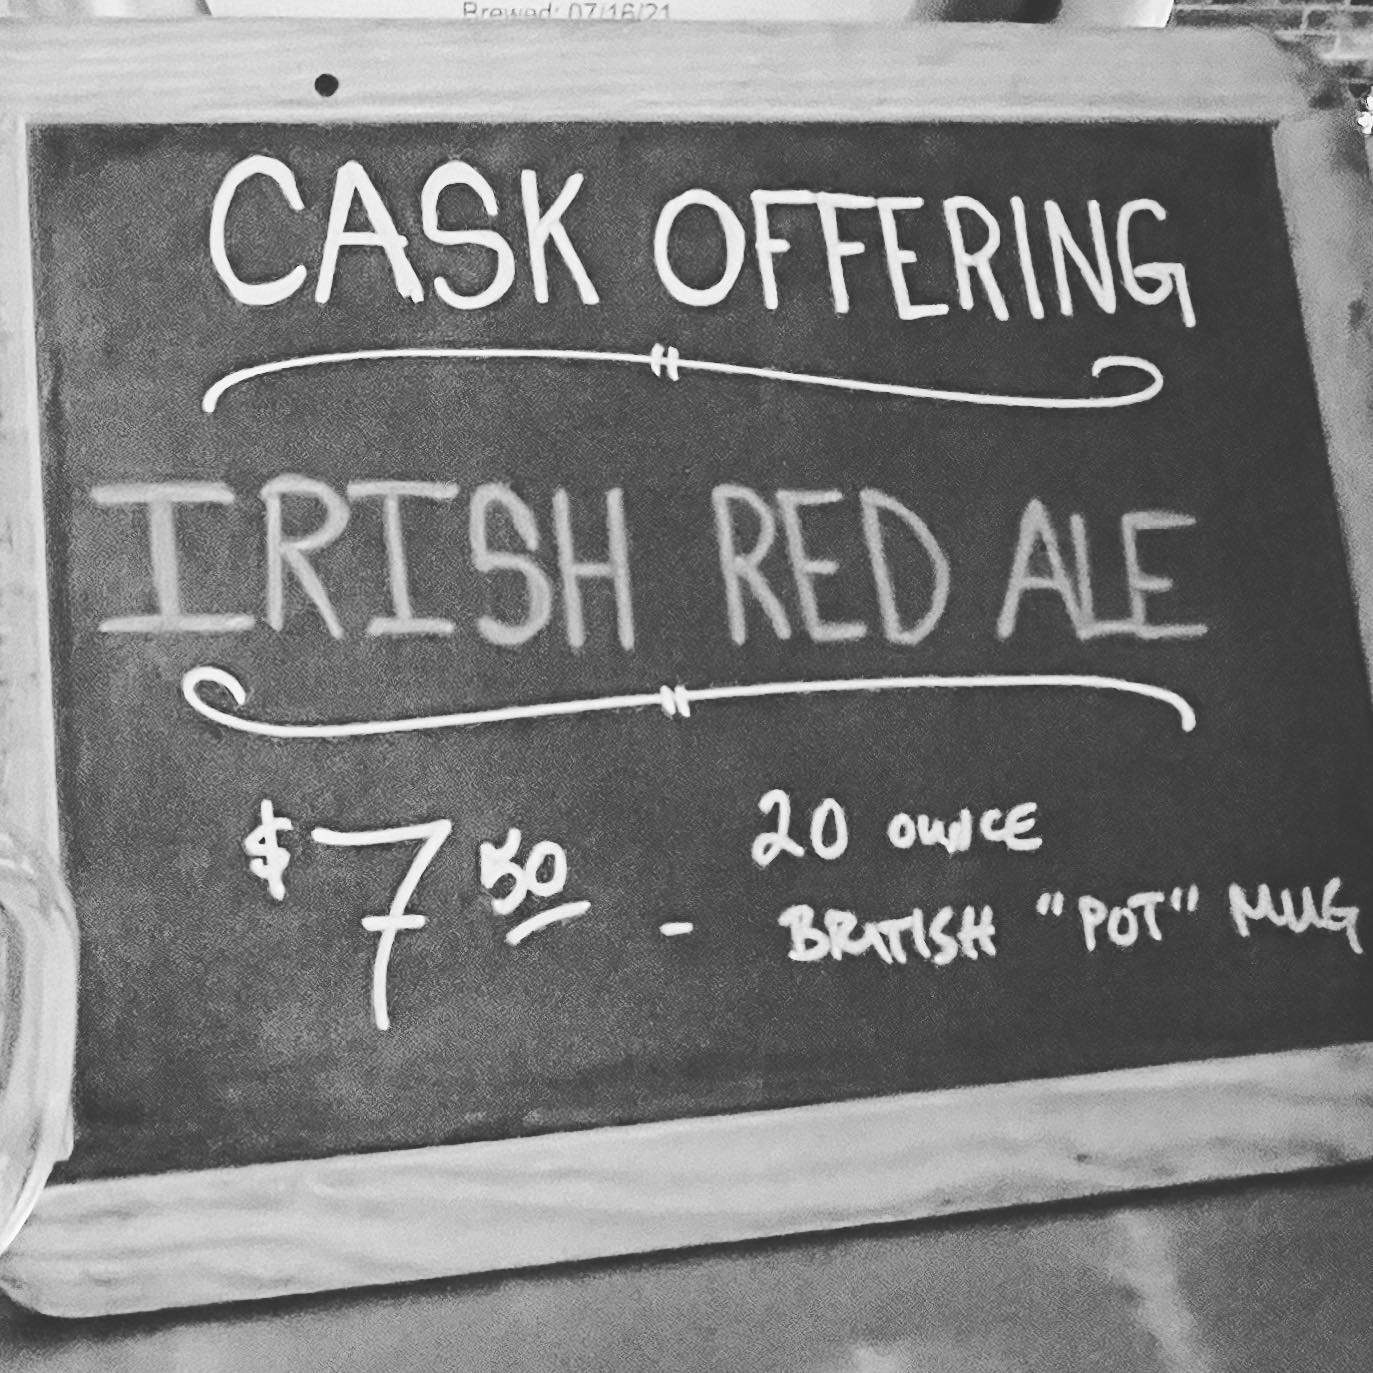 Brewed: 07/16/21
CASK OFFERING
IRISH RED ALE
$7 50 - 20 OUNCE
BRITISH "POT" MUG